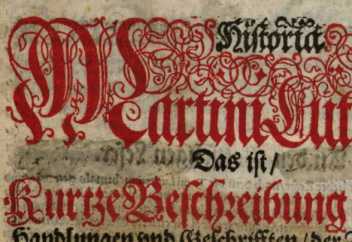 Historia
Martini Lut
Das ist/
Kurtze Beschreibung
Handlungen vnd Geschrifften/ der